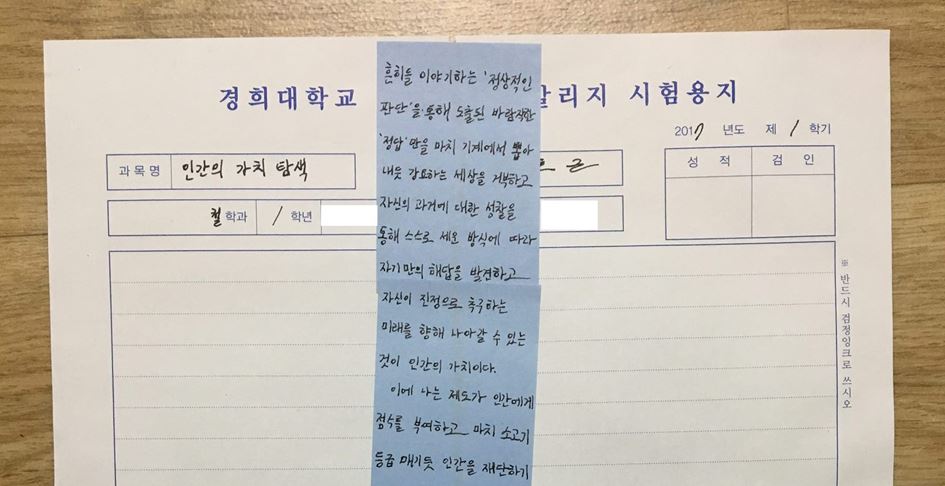 경희대학교 칼리지 시험용지
2017 년도 제 1 학기
과목명 인간의 가치 탐색
성 적 검 인
철 학과 1 학년
※ 반드시 검정잉크로 쓰시오
흔히들 이야기하는 '정상적인
판단'을 통해 도출된 바람직한
'정답'만을 마치 기계에서 뽑아
내듯 강요하는 세상을 거부하고
자신의 과거에 대한 성찰을
통해 스스로 세운 방식에 따라
자기만의 해답을 발견하고
자신이 진정으로 촉구하는
미래를 향해 나아갈 수 있는
것이 인간의 가치이다.
이에 나는 제도가 인간에게
점수를 부여하고 마치 소고기
등급 매기듯 인간을 재단하기